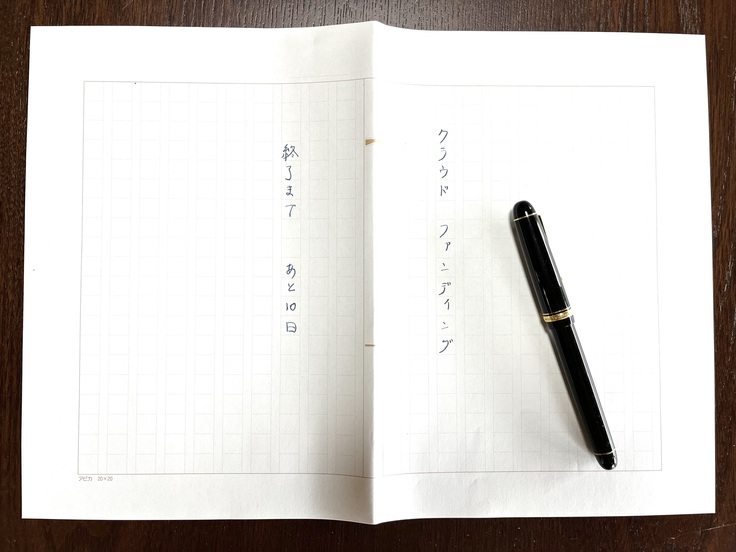 クラウド ファンディング
終了まで あと10日
アピカ 20×20